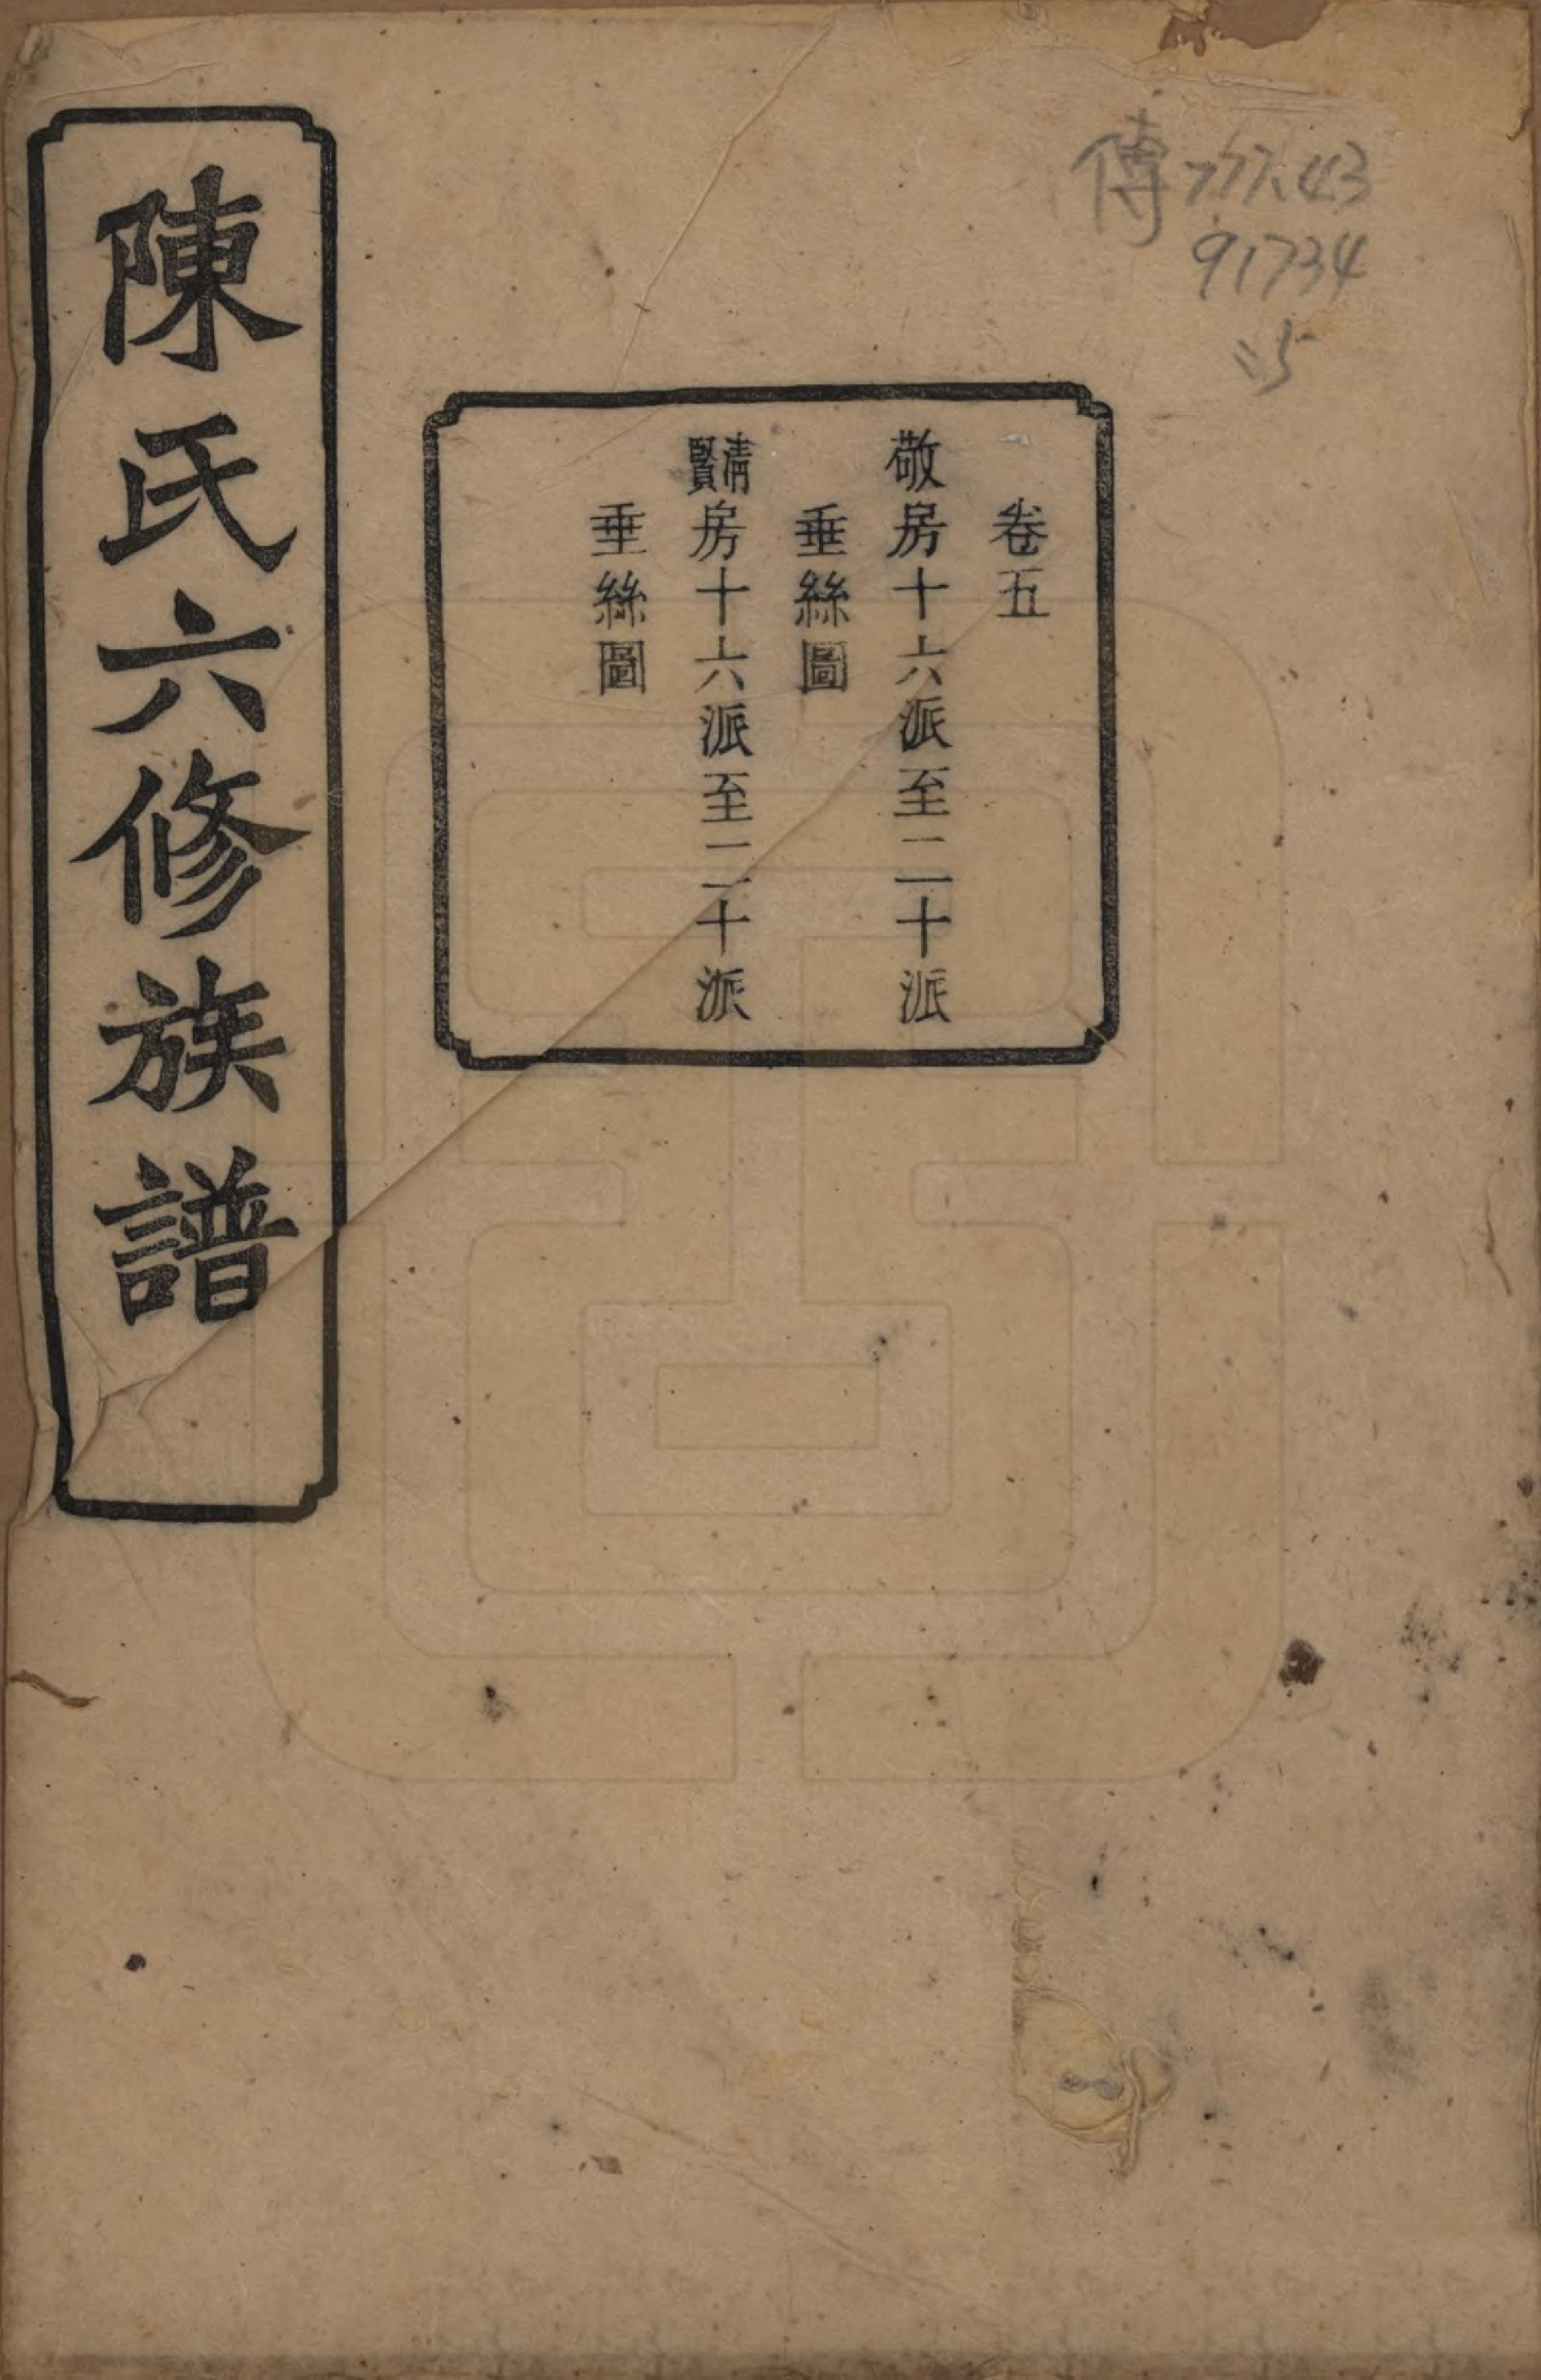 傳777.43
91734
:5
卷五
敬房十六派至二十派
垂絲圖
清賢房十六派至二十派
垂絲圖
陳氏六修族譜